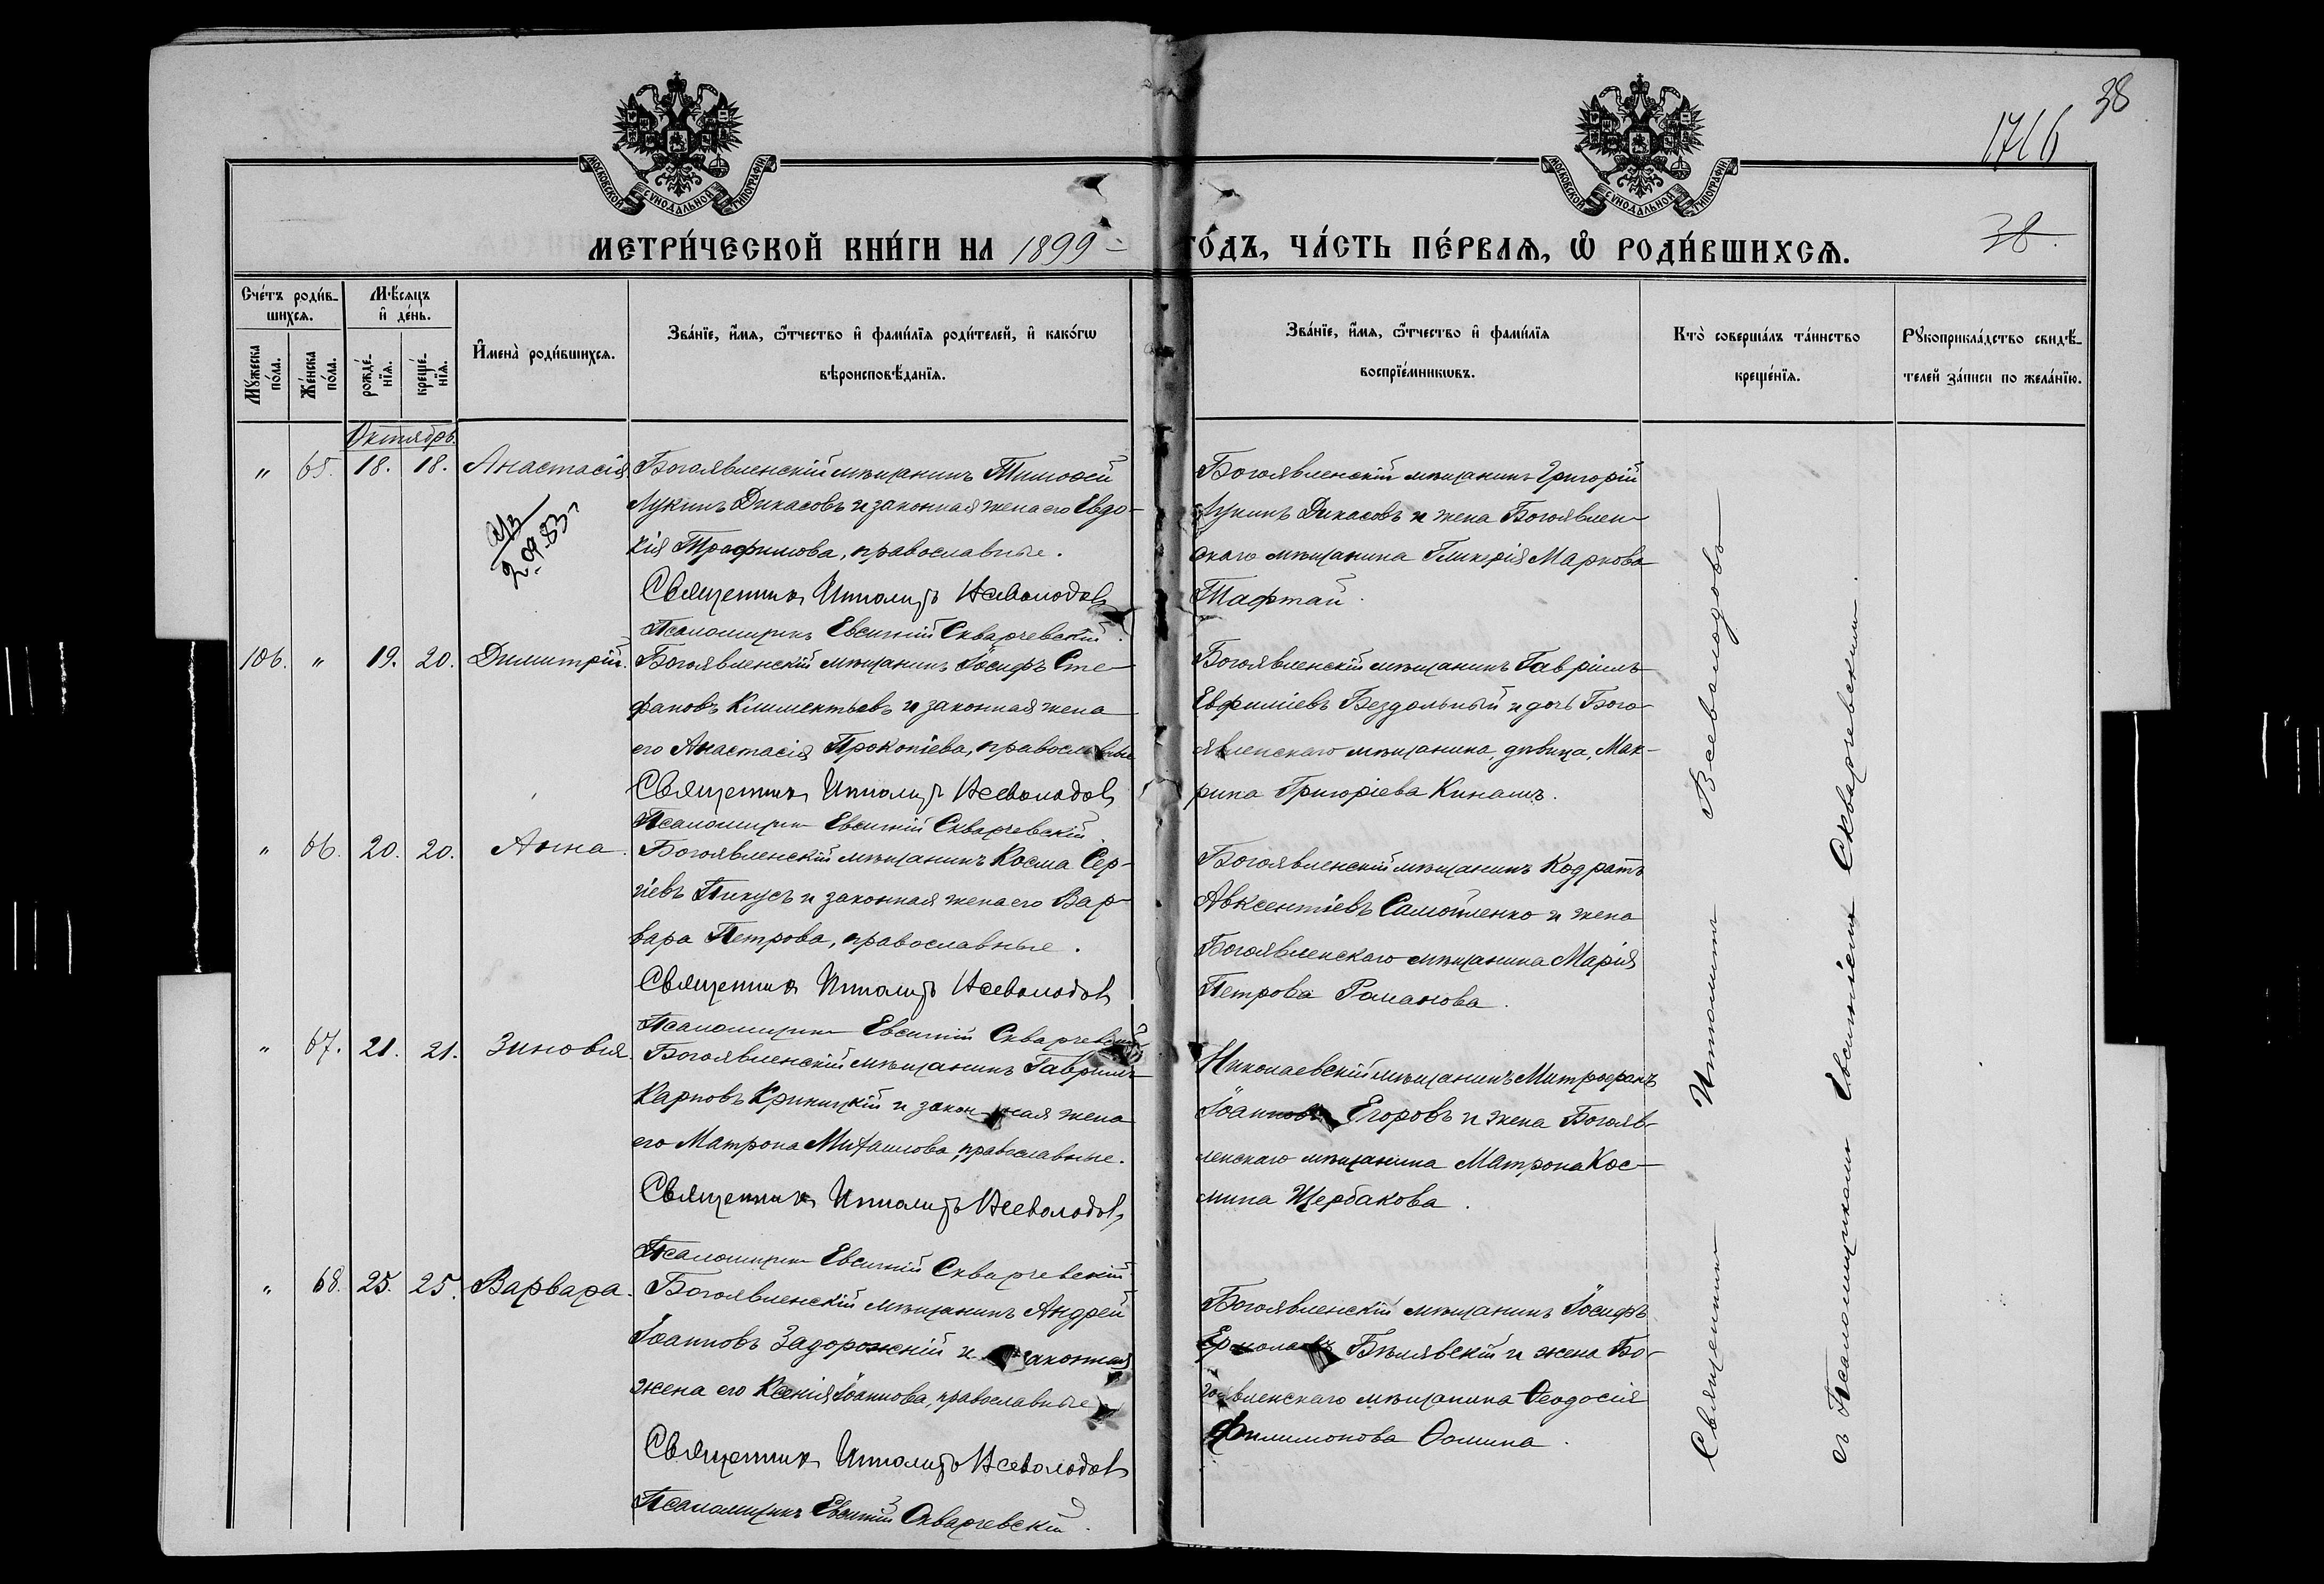 38
1716
МОСКОВСКОЙ СѴНОДАЛЬНОЙ ТИПОГРАФІИ
МОСКОВСКОЙ СѴНОДАЛЬНОЙ ТИПОГРАФІИ
МЕТРИ́ЧЕСКОЙ КНИ́ГИ НА 1899 ГО́ДЪ, ЧА́СТЬ ПЕ́РВАѦ, Ѿ РОДИ́ВШИХСѦ.
38.
Сче́тъ роди́в-
шихсѧ.
Мѣ́сѧцъ
и҆ де́нь.
И҆мена̀ роди́вшихсѧ.
Зва́нїе, и҆́мѧ, ѻ҆́тчество и҆ фами́лїѧ роди́телей, и҆ како́гѡ
вѣроисповѣ́данїѧ.
Зва́нїе, и҆́мѧ, ѻ҆́тчество и҆ фами́лїѧ
воспрїе́мникѡвъ.
Кто̀ соверша́лъ та́инство
креще́нїѧ.
Рꙋкоприкла́дство свидѣ́-
телей за́писи по жела́нїю.
Мꙋ́жеска
по́ла.
Же́нска
по́ла.
рожде́-
нїѧ.
креще́-
нїѧ.
Октябрь.
" 65. 18. 18. Анастасія
Богоявленскій мѣщанинъ Тимоѳей
Лукинъ Дикасовъ и законная жена его Евдо-
кія Трофимова, православные.
Священникъ Ипполитъ Всеволодовъ
Псаломщикъ Евсигній Скварчевскій.
Богоявленскій мѣщанинъ Григорій
Лукинъ Дикасовъ и жена Богоявлен-
скаго мѣщанина Гликерія Маркова
Тафтай.
2.09.83
106. " 19. 20. Димитрій.
Богоявленскій мѣщанинъ Іосифъ Сте-
фановъ Климентьевъ и законная жена
его Анастасія Прокопіева, православные
Священникъ Ипполитъ Всеволодовъ
Псаломщикъ Евсигній Скварчевскій.
Богоявленскій мѣщанинъ Гавріилъ
Евфиміевъ Бездольный и дочь Бого-
явленскаго мѣщанина, дѣвица, Мак-
рина Григоріева Кинашъ.
" 66. 20. 20. Анна.
Богоявленскій мѣщанинъ Косма Сер-
гіевъ Пикусъ и законная жена его Вар-
вара Петрова, православные.
Священникъ Ипполитъ Всеволодовъ
Псаломщикъ Евсигній Скварчевскій
Богоявленскій мѣщанинъ Кодратъ
Авксентіевъ Самойленко и жена
Богоявленскаго мѣщанина Марія
Петрова Романова.
" 67. 21. 21. Зиновія.
Богоявленскій мѣщанинъ Гавріилъ
Карповъ Криницкій и законная жена
его Матрона Михаилова, православные.
Священникъ Ипполитъ Всеволодовъ
Псаломщикъ Евсигній Скварчевскій
Николаевскій мѣщанинъ Митрофанъ
Іоанновъ Егоровъ и жена Богояв-
ленскаго мѣщанина Матрона Кос-
мина Щербакова.
" 68. 25. 25. Варвара.
Богоявленскій мѣщанинъ Андрей
Іоанновъ Задорожній и законная
жена его Ксенія Іоаннова, православные
Священникъ Ипполитъ Всеволодовъ
Псаломщикъ Евсигній Скварчевскій.
Богоявленскій мѣщанинъ Іосифъ
Ермолаевъ Бѣлявскій и жена Бо-
гоявленскаго мѣщанина Ѳеодосія
Филимонова Ѳомина.
Священникъ Ипполитъ Всеволодовъ
съ Псаломщикомъ Евсигніемъ Скварчевскимъ.